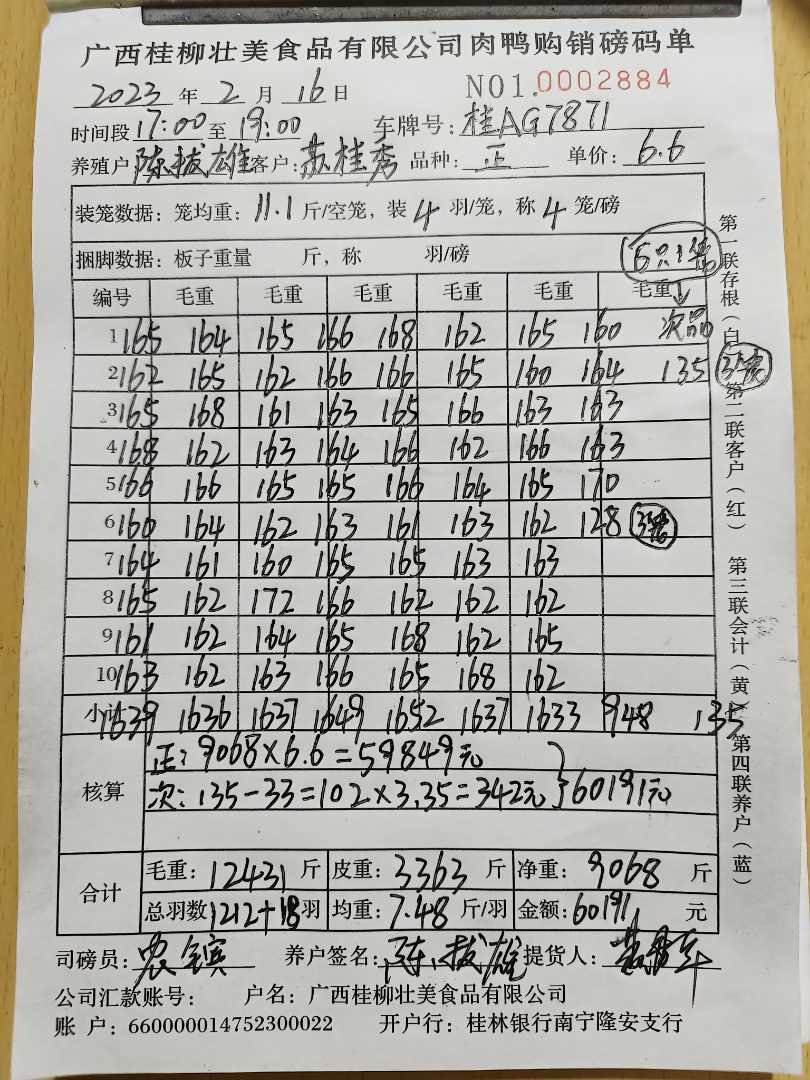 广西桂柳壮美食品有限公司肉鸭购销磅码单
2023 年 2 月 16 日 NO1. 0002884
时间段 17:00 至 19:00 车牌号: 桂AG7871
养殖户 陈拔雄 客户: 苏桂秀 品种: 正 单价: 6.6
装笼数据: 笼均重: 11.1 斤/空笼, 装 4 羽/笼, 称 4 笼/磅
捆脚数据: 板子重量 斤, 称 羽/磅 6只1笼
编号 毛重 毛重 毛重 毛重 毛重 毛重
1 165 164 165 166 168 162 165 160 次品
2 162 165 162 166 166 165 160 164 135 3笼
3 165 168 161 163 165 166 163 163
4 168 162 163 164 166 162 166 163
5 166 166 165 165 166 164 165 170
6 160 164 162 163 161 163 162 128 3笼
7 164 161 160 165 165 163 163
8 165 162 172 166 162 162 162
9 161 162 164 165 168 162 165
10 163 162 163 166 165 168 162
小计 1639 1636 1637 1649 1652 1637 1633 948 135
核算 正: 9068×6.6=59849元
次: 135-33=102×3.35=342元 }60191元
合计 毛重: 12431 斤 皮重: 3363 斤 净重: 9068 斤
总羽数 1212+18 羽 均重: 7.48 斤/羽 金额: 60191 元
司磅员: 农镔 养户签名: 陈拔雄 提货人:
公司汇款账号: 户名: 广西桂柳壮美食品有限公司
账 户: 660000014752300022 开户行: 桂林银行南宁隆安支行
第一联存根(白) 第二联客户(红) 第三联会计(黄) 第四联养户(蓝)